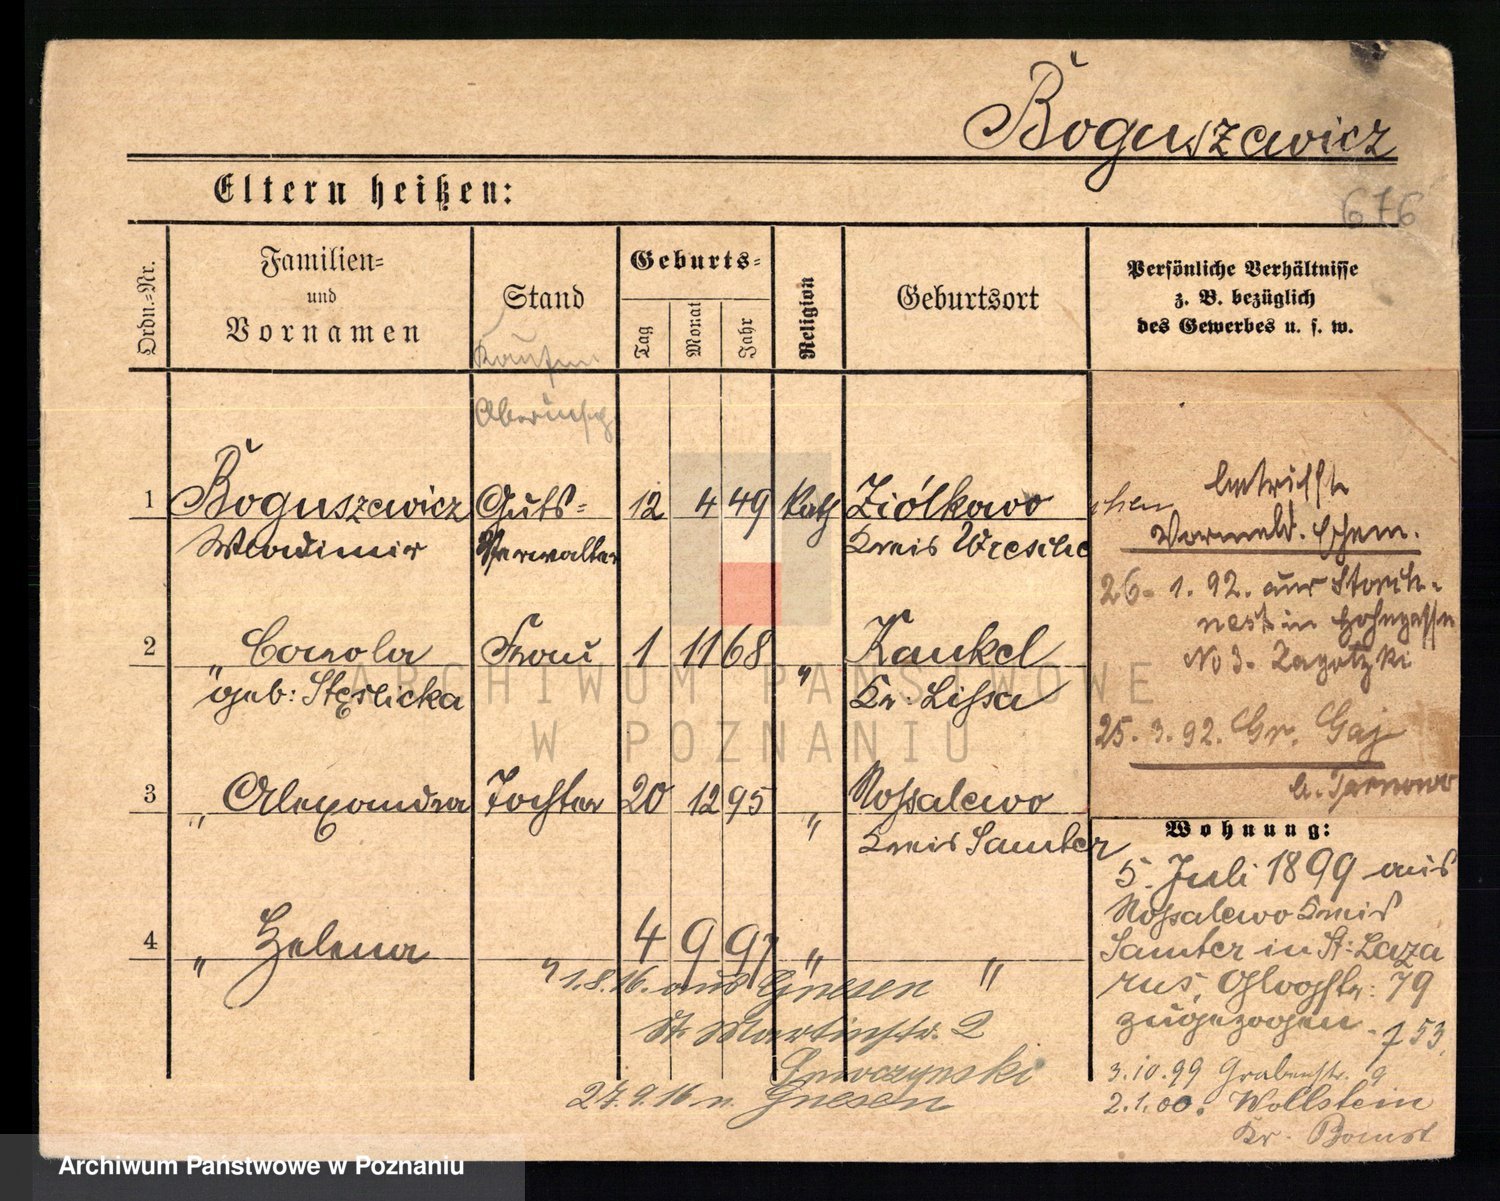 Boguszewicz
Eltern heißen:
676
Ordn.-Nr.
Familien-
und
Vornamen
Stand
Geburts-
Tag
Monat
Jahr
Religion
Geburtsort
Persönliche Verhältnisse
z. B. bezüglich
des Gewerbes u. s. w.
1 Boguszewicz Guts- 12 4 49 Kath Ziólkowo
Wladimir Verwalter Kreis Wreschen
2 " Carola Frau 1 11 68 " Kankel
geb: Stęslicka Kr: Lissa
3 " Alexandra Tochter 20 12 95 " Rossalewo
Kreis Samter
4 " Helena " 4 9 97 " "
1.8.16. aus Gnesen
St Martinstr. 2
27.9.16 n. Gnesen
26. 1. 92. aus Storch-
nest in Hohegasse
No 3. Zagotzki
25. 3. 92. Gr. Gaj
b. Tarnowo
Wohnung:
5. Juli 1899 aus
Rossalewo Kreis
Samter in St: Laza
rus, Glogstr: 79
zugezogen. f 53.
3.10.99 Grabenstr. 9
2.1.00. Wollstein
Kr. Bomst
ARCHIWUM PAŃSTWOWE
W POZNANIU
Archiwum Państwowe w Poznaniu